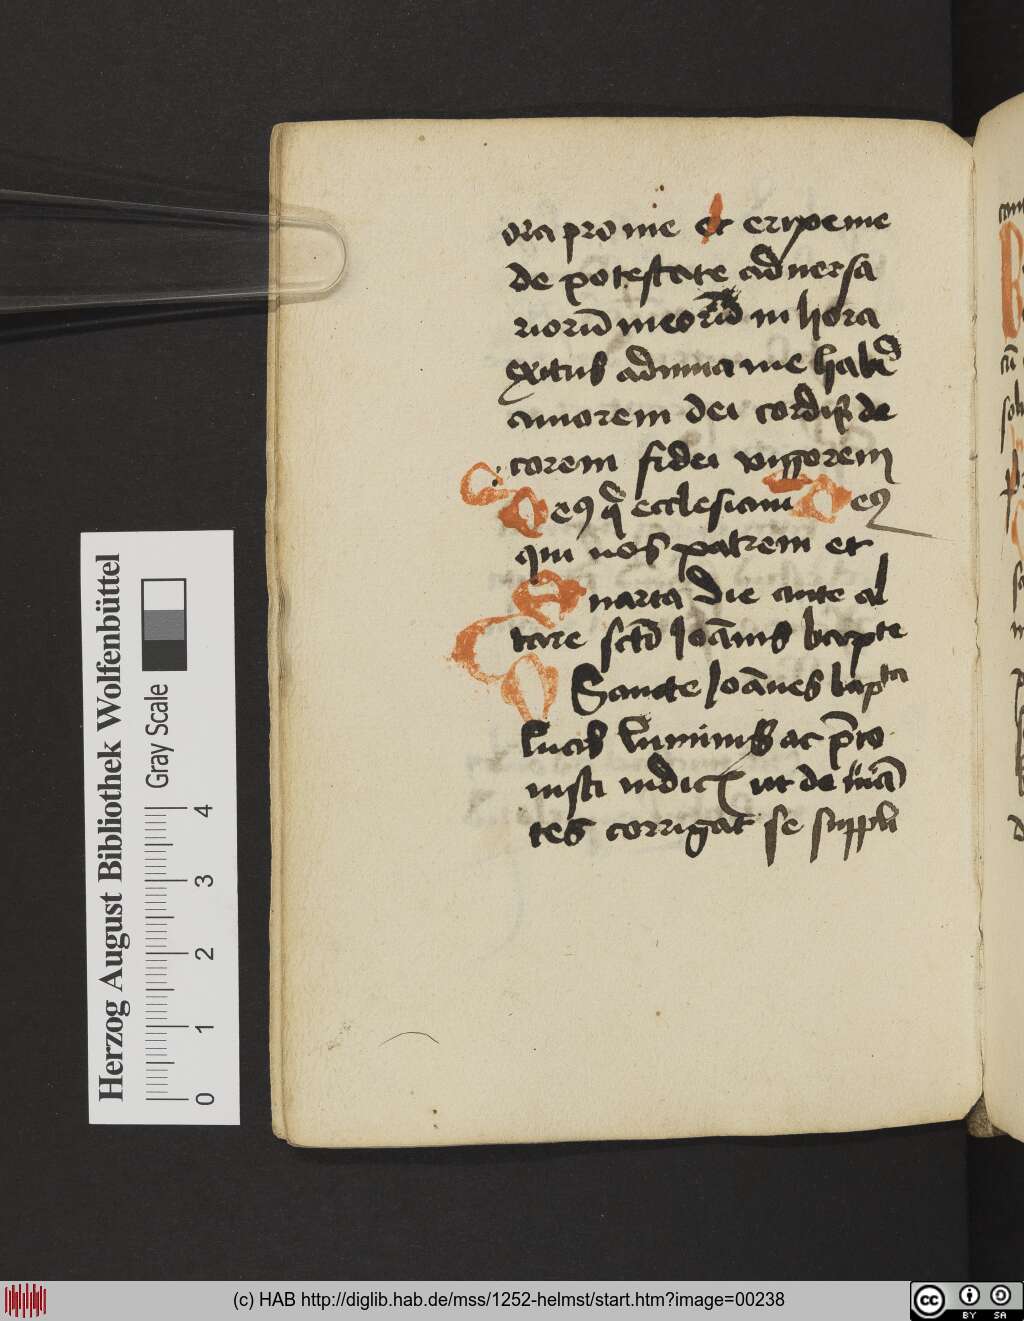 ora pro me et eripe me
de potestate adversa
rioru᷈ meoru᷈ in hora
exitus adiuva me habe᷈d
amorem dei cordis de
corem fidei vigorem
Deus q᷈ ecclesiam Deus
qui nos patrem et
Quarta die ante al
tare sct᷈i Joa᷈nis bap᷈te
O Sancte Joa᷈nes bapta
lucis luminis ac p᷈co
nisti ut de
tes corrigat se suppli
Herzog August Bibliothek Wolfenbüttel
Gray Scale
0 1 2 3 4
(c) HAB http://diglib.hab.de/mss/1252-helmst/start.htm?image=00238
cc BY SA